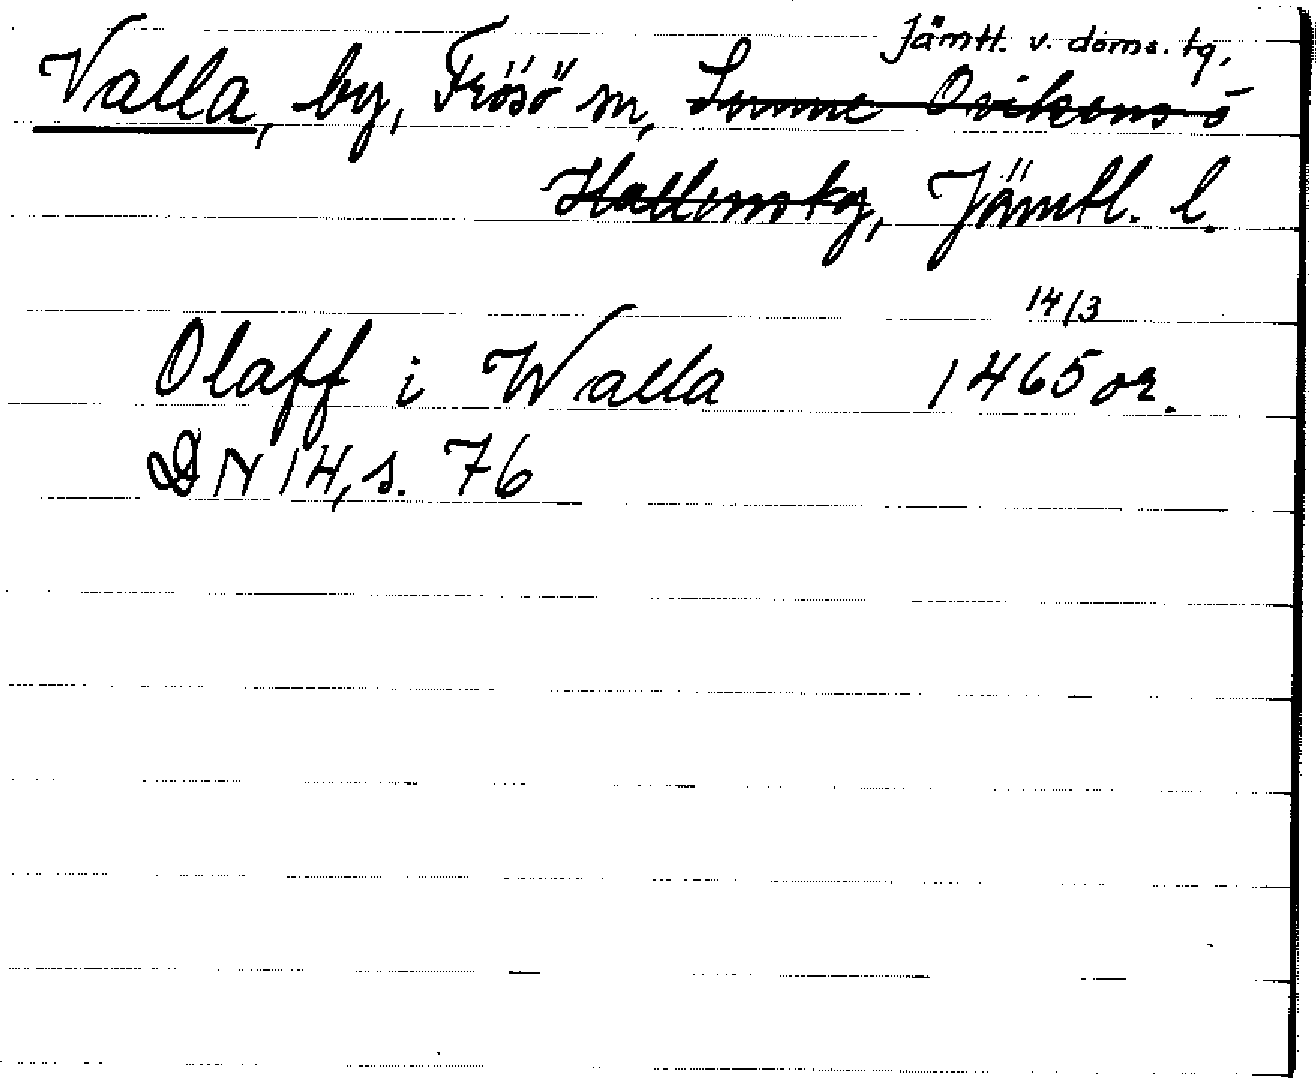 Jämtl. v. doms. tg,
Valla, by, Frösö sn, Sunne Ovikens o
Hallens tg, Jämtl. l.
14/3
Olaff i Walla 1465 or.
DN 14, s. 76